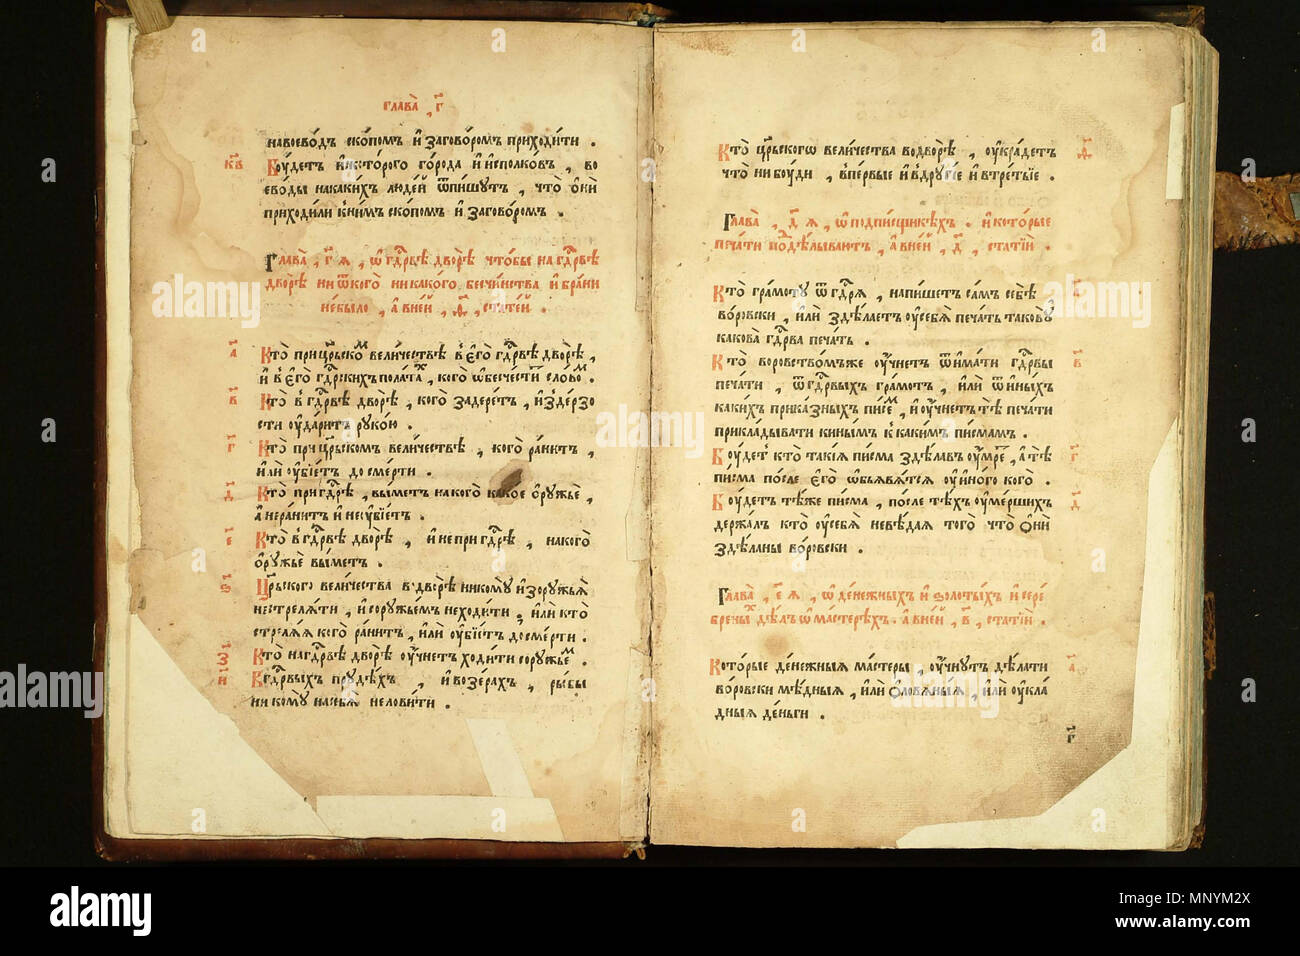 глава̀ , г҃
навоево́дъ ско́помъ и҆ загово́ромъ приходи́ти .
к҃в
Бꙋ́детъ и҆ некото́рого го́рода и҆ и҆сполко́въ , во
ево́ды накаки́хъ люде́й ѿпи́шутъ , что̀ ѻ҆нѝ
приходи́ли кни́мъ ско́помъ и҆ загово́ромъ .
Глава̀ , г҃ ꙗ , ѡ҆ гдⷭ҇рвѣ дворѣ̀ что́бы на гдⷭ҇рвѣ
дворѣ̀ ни ѿкого̀ никако́го бесчи́нства и҆ бра́ни
не́было , а҆ вне́й , ѳ҃ , стате́й .
а҃
Кто̀ при црⷭ҇ко́мъ вели́чествѣ в̾ е҆го̀ гдⷭ҇рвѣ дворѣ̀ ,
и҆ в̾ е҆го̀ гдⷭ҇рскихъ пола́тахъ , кого̀ ѡ҆бесче́ститъ сло́вомъ .
в҃
Кто̀ в̾ гдⷭ҇рвѣ дворѣ̀ , кого̀ задере́тъ , и҆здерзо
сти ᲂу҆да́ритъ руко́ю .
г҃
Кто̀ при црⷭ҇ко́мъ вели́чествѣ , кого̀ ра́нитъ ,
и҆лѝ ᲂу҆бїе́тъ до сме́рти .
д҃
Кто̀ при гдⷭ҇рѣ , вы́метъ на кого̀ како́е ѻ҆ру́жье ,
а҆ нера́нитъ и҆ неᲂу҆бїе́тъ .
е҃
Кто̀ в̾ гдⷭ҇рвѣ дворѣ̀ , и҆ не при гдⷭ҇рѣ , на кого̀
ѻ҆ру́жье вы́метъ .
ѕ҃
Црⷭ҇ского вели́чества в дворѣ̀ никому̀ и҆зору́жьѧ
нестрелѧ́ти , и҆ сору́жьемъ неходи́ти , и҆лѝ кто̀
стрелѧ́ѧ кого̀ ра́нитъ , и҆лѝ ᲂу҆бїе́тъ до сме́рти .
з҃
Кто̀ на гдⷭ҇рвѣ дворѣ̀ ᲂу҆чнетъ ходи́ти сору́жьемъ .
и҃
В̾ гдⷭ҇рвыхъ пруде́хъ , и҆ во зе́рахъ , ры́бы
никому̀ на себѧ̀ нелови́ти .
ѳ҃
Кто̀ црⷭ҇ьскогѡ вели́чества водворѣ̀ , ᲂу҆кра́детъ
что̀ нибꙋ́ди , в̾пе́рвые и҆ в̾ други́е и҆ втре́тїе .
Глава̀ , д҃ ꙗ , ѡ҆ подпи́сщикѣхъ . и҆ кото́рые
печа́ти подде́лываютъ , а҆ вне́й , д҃ , статїѝ .
а҃
Кто̀ гра́моту ѿ гдⷭ҇рѧ , напи́шетъ са́мъ себѣ̀
во́ровски , и҆лѝ здѣ́лаетъ ᲂу҆себѧ̀ печа́ть такову̀
какова̀ гдⷭ҇рва печа́ть .
в҃
Кто̀ воровство́мъже ᲂу҆чнетъ ѿима́ти гдⷭ҇рвы
печа́ти , ѿ гдⷭ҇рвыхъ гра́мотъ , и҆лѝ ѿи́ныхъ
каки́хъ прика́зныхъ пи́семъ , и҆ ᲂу҆чнетъ тѣ̀ печа́ти
прикла́дывати кины́мъ к̾ каки́мъ письма́мъ .
г҃
Бꙋ́детъ кто̀ таки́ѧ пи́сма здѣ́лавъ ᲂу҆мре́тъ , а҆ тѣ̀
пи́сма по́сле е҆го̀ ѡ҆б̾ѧвѧ́тсѧ ᲂу҆и́ного кого̀ .
д҃
Бꙋ́детъ тѣ́же пи́сма , по́сле тѣ́хъ ᲂу҆ме́ршихъ
держа́лъ кто̀ ᲂу҆себѧ̀ невѣ́даѧ того̀ что̀ ѻ҆нѝ
здѣ́ланы во́ровски .
Глава̀ , е҃ ꙗ , ѡ҆ де́нежныхъ и҆ золоты́хъ и҆ сере́
бреныхъ дѣ́лъ ѡ҆ ма́стерѣхъ . а҆ вне́й , в҃ , статїѝ .
а҃
Кото́рые де́нежныѧ ма́стеры , ᲂу҆чнутъ дѣ́лати
во́ровски мѣ́дныѧ , и҆лѝ ѻ҆ловѧ́ныѧ , и҆лѝ ᲂу҆кла́
дныѧ де́ньги .
г҃
alamy
Image ID: MNYM2X
www.alamy.com